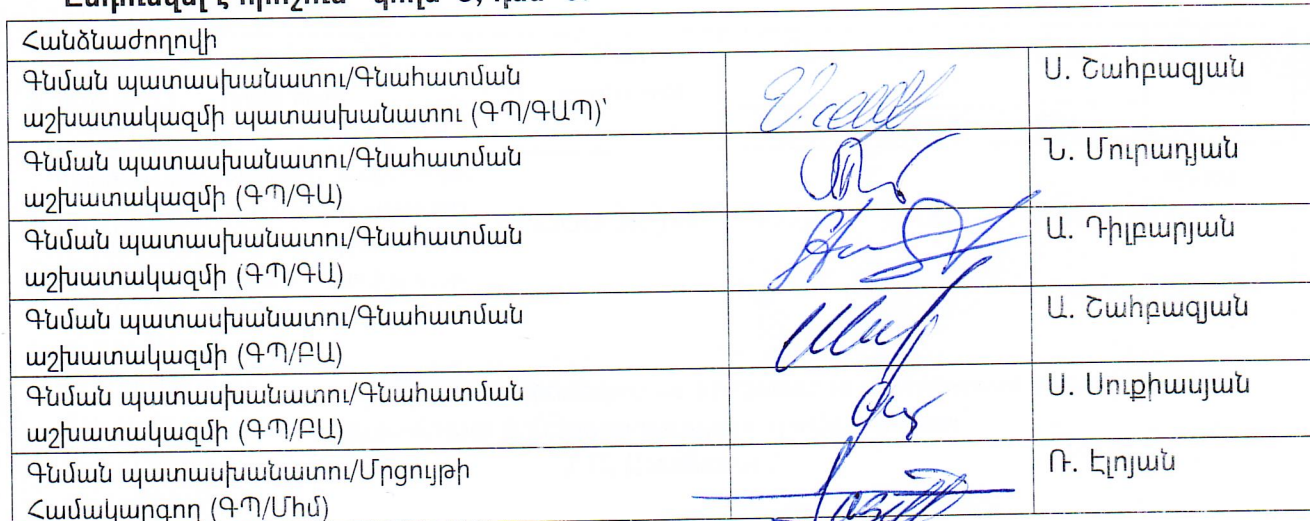 Հանձնաժողովի
Գնման պատասխանատու/Գնահատման
աշխատակազմի պատասխանատու (ԳՊ/ԳԱՊ)՝
Ս. Շահբազյան
Գնման պատասխանատու/Գնահատման
աշխատակազմի (ԳՊ/ԳԱ)
Ն. Մուրադյան
Գնման պատասխանատու/Գնահատման
աշխատակազմի (ԳՊ/ԳԱ)
Ա. Դիլբարյան
Գնման պատասխանատու/Գնահատման
աշխատակազմի (ԳՊ/ԲԱ)
Ա. Շահբազյան
Գնման պատասխանատու/Գնահատման
աշխատակազմի (ԳՊ/ԲԱ)
Ս. Սուքիասյան
Գնման պատասխանատու/Մրցույթի
Համակարգող (ԳՊ/Միմ)
Ռ. Էլոյան